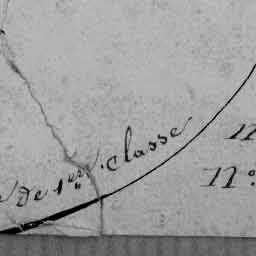 de 1ère classe
N
N°